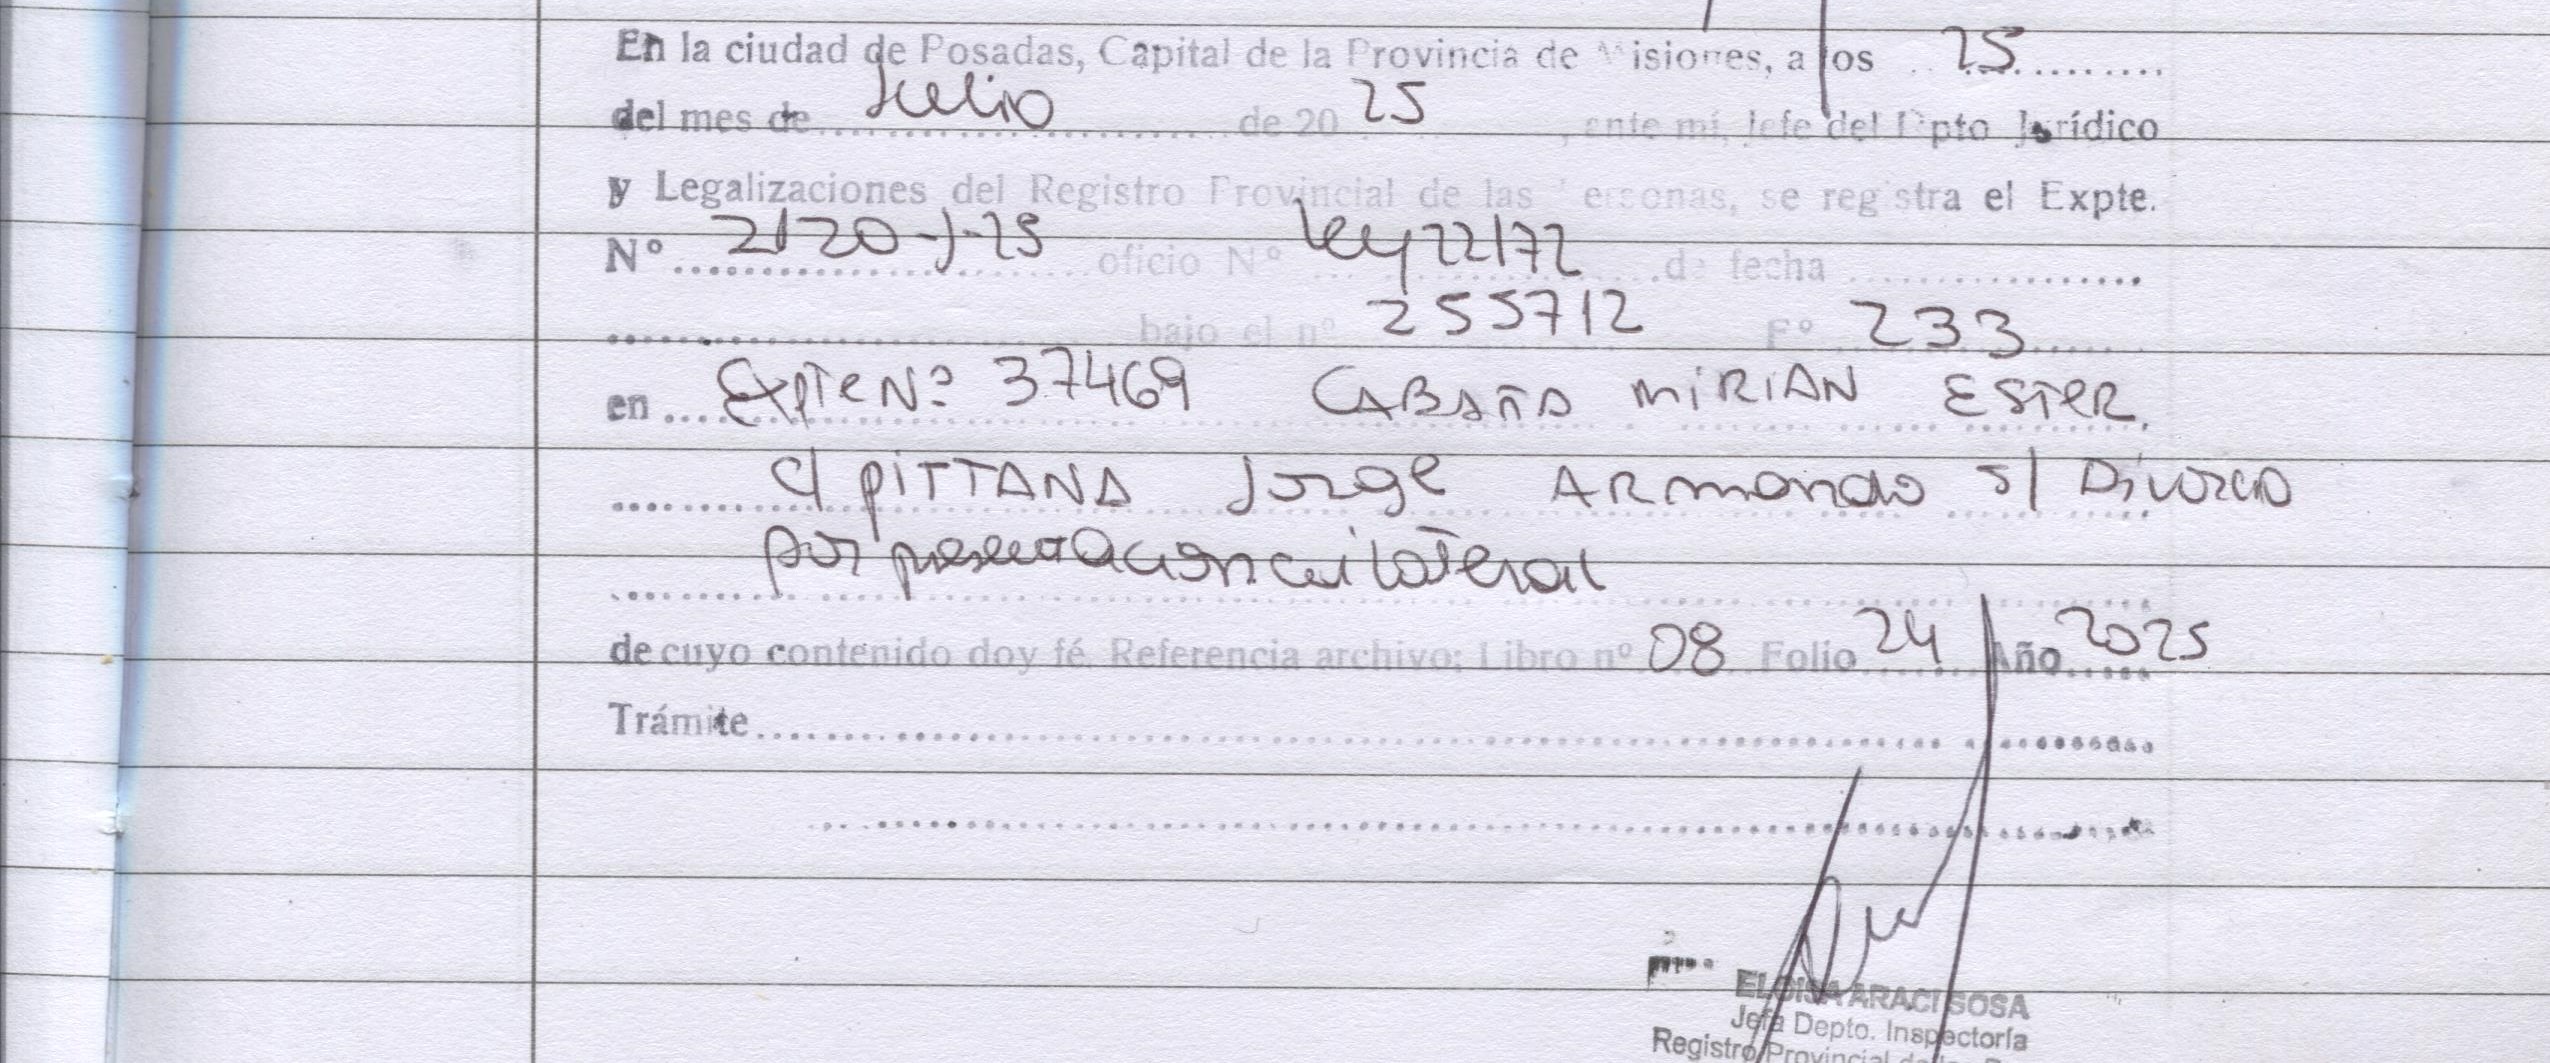 En la ciudad de Posadas, Capital de la Provincia de Misiones, a los 25
del mes de Julio de 20 25, ante mí, Jefe del Dpto Jurídico
y Legalizaciones del Registro Provincial de las Personas, se registra el Expte.
Nº 2120-J-25 oficio Nº Ley 22172 de fecha
bajo el nº 255712 Fº 233
en Expte Nº 37469 CABAÑA MIRIAN ESTER
c/ PITTANA Jorge ARmando s/ Divorcio
por presentacion unilateral
de cuyo contenido doy fé. Referencia archivo: Libro nº 08 Folio 24 Año 2025
Trámite
ELOISA ARACI SOSA
Jefa Depto. Inspectoría
Registro Provincial de las